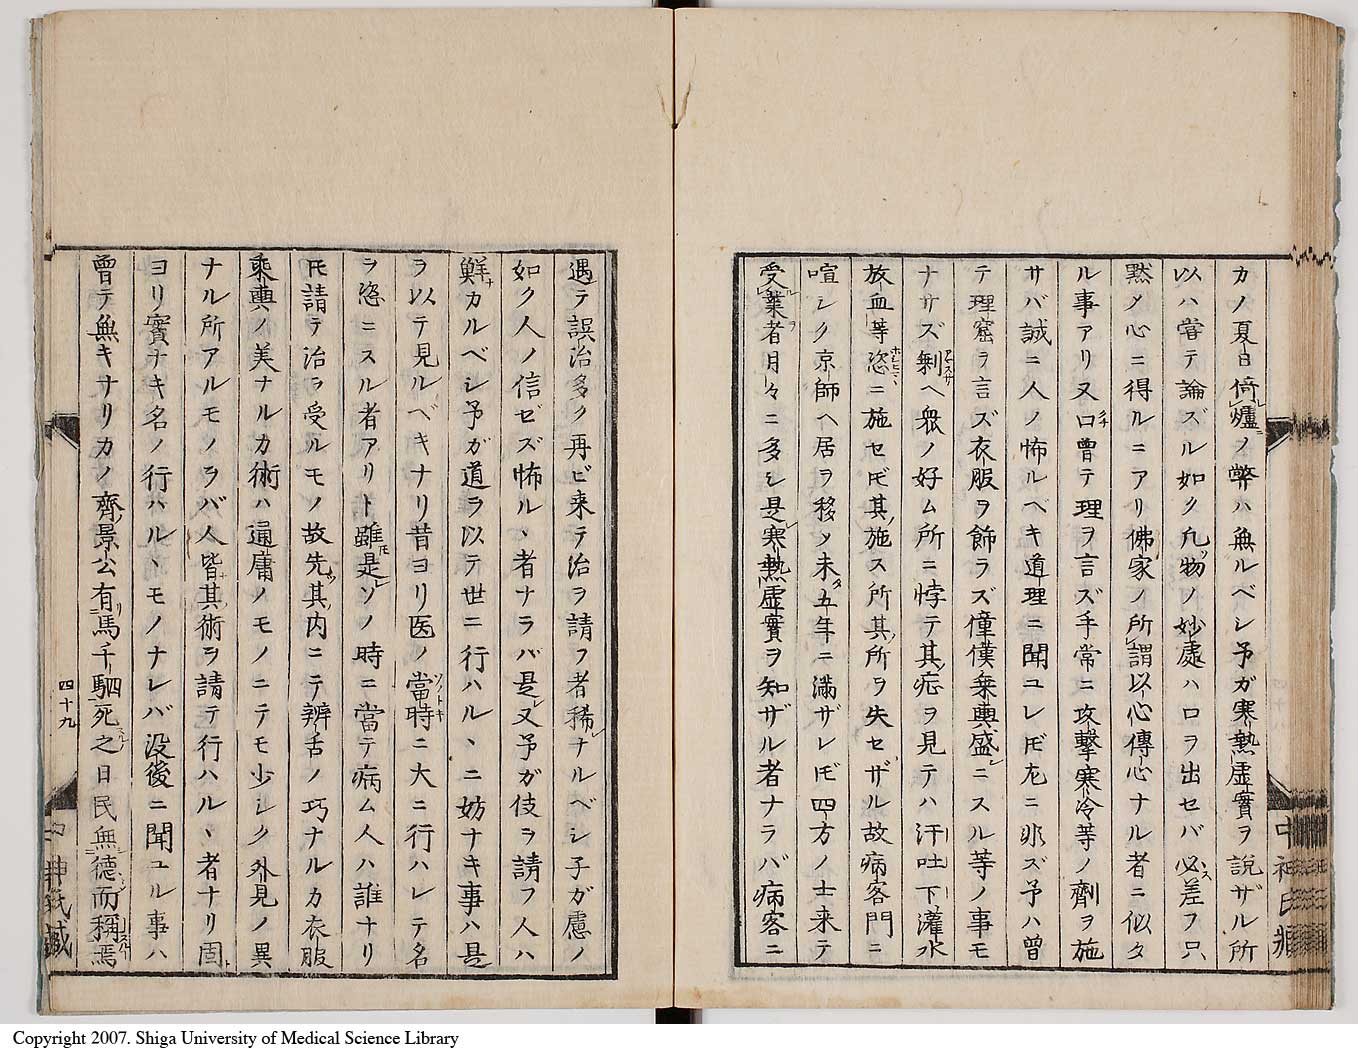 カノ夏日倚爐ノ弊ハ無ルベシ予ガ寒熱虛實ヲ說ザル所
以ハ嘗テ論ズル如ク凡物ノ妙處ハ口ヲ出セバ必差フ只
黙〆心ニ得ルニアリ佛家ノ所謂以心傳心ナル者ニ似タ
ル事アリ又口曾テ理ヲ言ズ手常ニ攻擊寒冷等ノ劑ヲ施
サバ誠ニ人ノ怖ルベキ道理ニ聞ユレ𪜈左ニ非ズ予ハ曾
テ理窟ヲ言ズ衣服ヲ飾ラズ僮僕乗輿盛ニスル等ノ事モ
ナサズ剩ヘ衆ノ好ム所ニ悖テ其症ヲ見テハ汗吐下灌水
放血等恣ニ施セ𪜈其施ス所其所ヲ失セザル故病客門ニ
喧シク京師ヘ居ヲ移〆未五年ニ滿ザレ𪜈四方ノ士来テ
受業者月々ニ多シ是寒熱虛實ヲ知ザル者ナラバ病客ニ
遇テ誤治多ク再ビ来テ治ヲ請フ者稀ナルベシ予ガ慮ノ
如ク人ノ信ゼズ怖ルヽ者ナラバ是又予ガ伎ヲ請フ人ハ
鮮カルベシ予ガ道ヲ以テ世ニ行ハルヽニ妨ナキ事ハ是
ヲ以テ見ルベキナリ昔ヨリ医ノ當時ニ大ニ行ハレテ名
ヲ恣ニスル者アリト雖是ソノ時ニ當テ病ム人ハ誰ナリ
𪜈請テ治ヲ受ルモノ故先其内ニテ辨舌ノ巧ナルカ衣服
乗輿ノ美ナルカ術ハ通庸ノモノニテモ少シク外見ノ異
ナル所アルモノヲバ人皆其術ヲ請テ行ハルヽ者ナリ固
ヨリ實ナキ名ノ行ハルヽモノナレバ没後ニ聞ユル事ハ
曾テ無キナリカノ齊景公有馬千駟死之日民無德而稱焉
四十九
中神氏藏